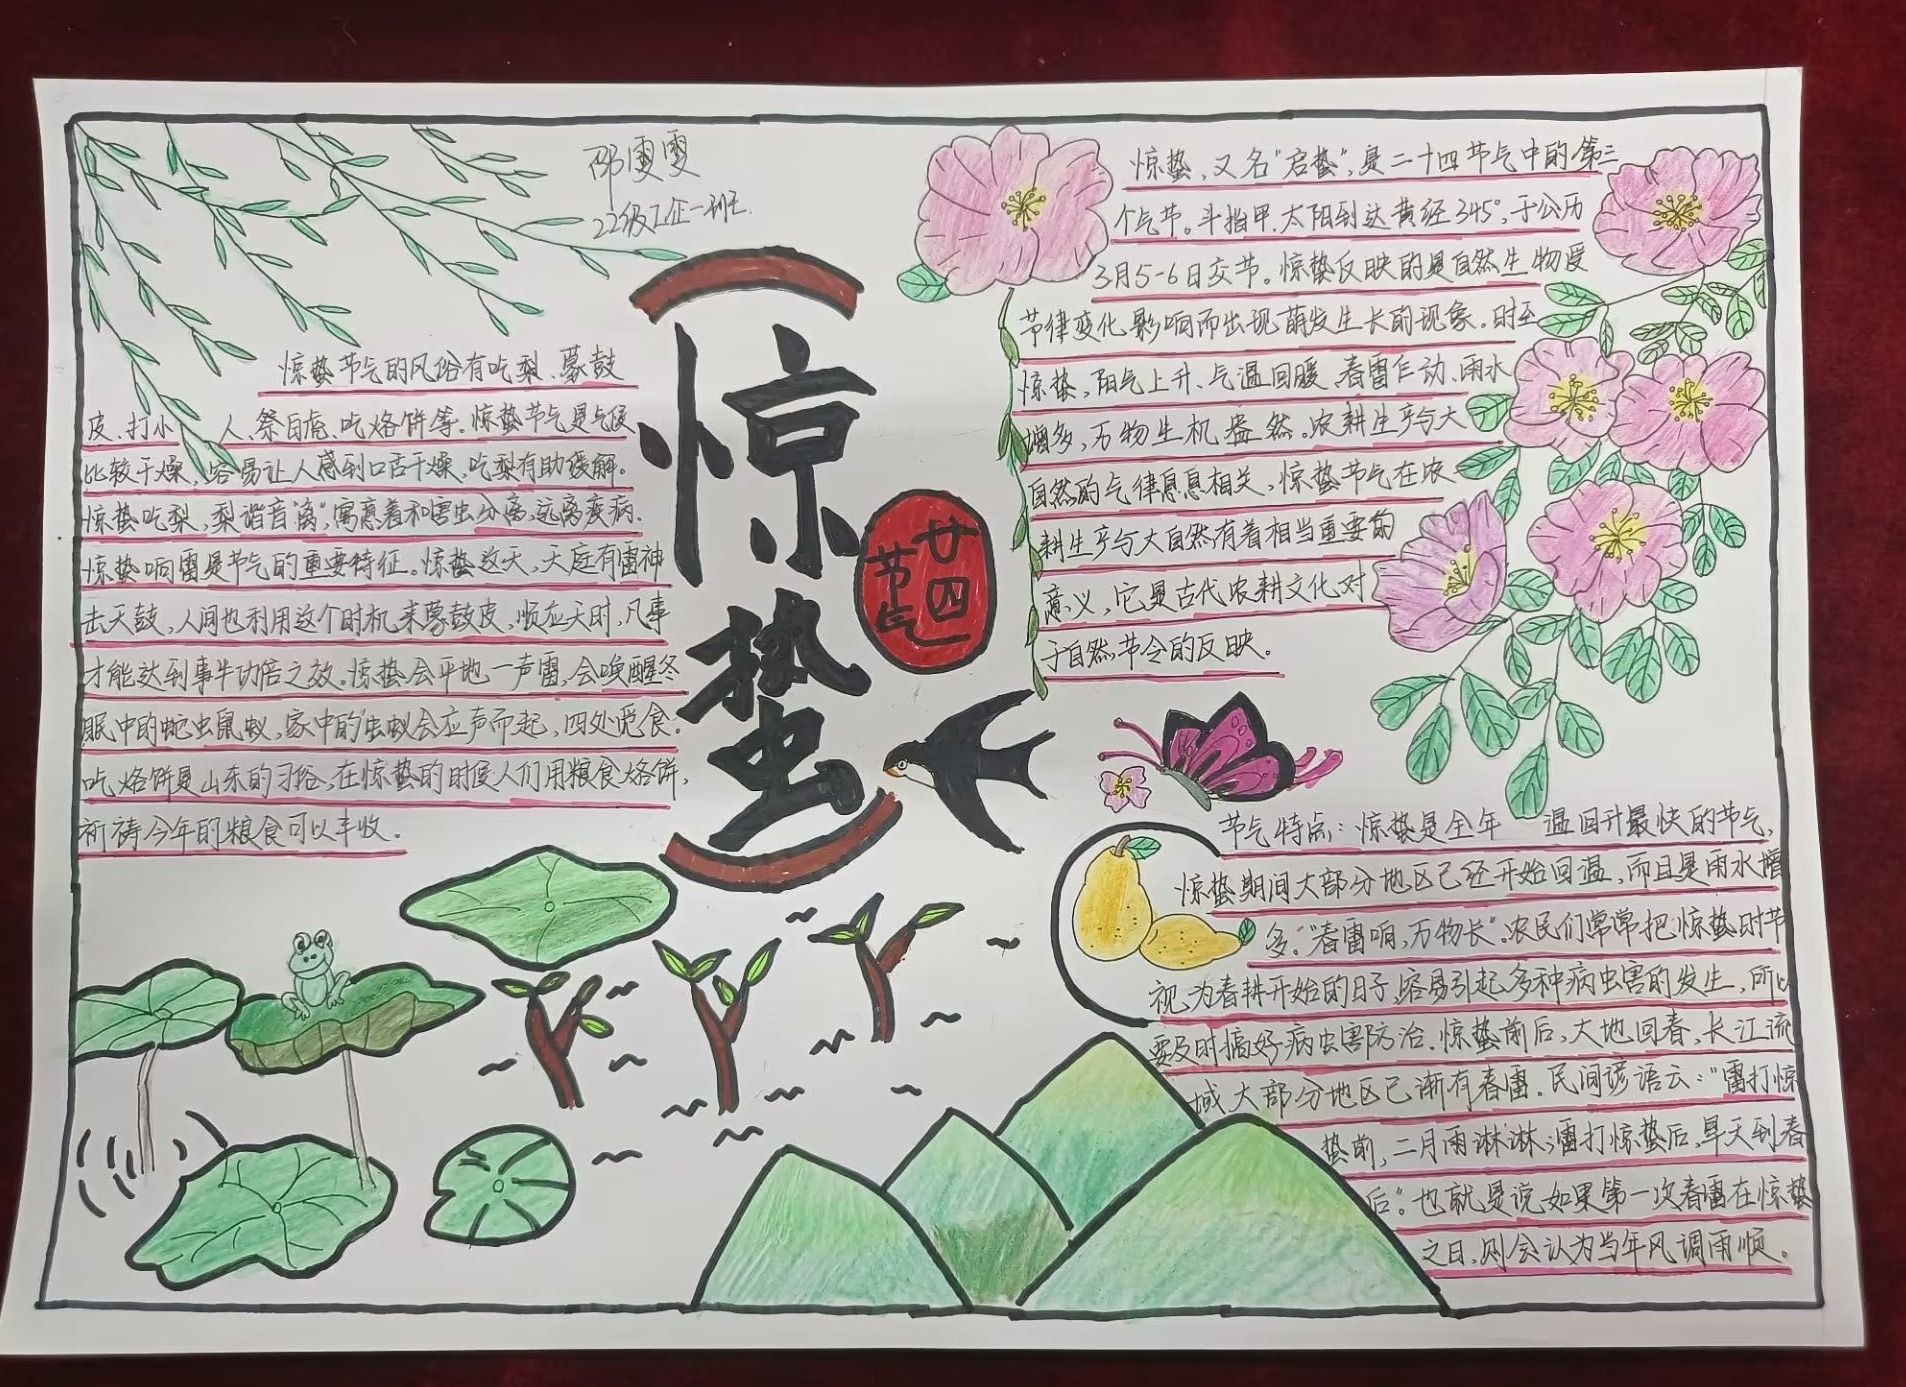 邵雯雯
22级工企一班
惊蛰
廿四
节气
惊蛰节气的风俗有吃梨、蒙鼓
皮、打小人、祭白虎、吃烙饼等。惊蛰节气是气候
比较干燥,容易让人感到口舌干燥,吃梨有助缓解。
惊蛰吃梨,梨谐音“离”,寓意着和害虫分离,远离疾病.
惊蛰响雷是节气的重要特征。惊蛰这天,天庭有雷神
击天鼓,人间也利用这个时机来蒙鼓皮,顺应天时,凡事
才能达到事半功倍之效。惊蛰会平地一声雷,会唤醒冬
眠中的蛇虫鼠蚁,家中的虫蚁会应声而起,四处觅食。
吃烙饼是山东的习俗,在惊蛰的时侯人们用粮食烙饼,
祈祷今年的粮食可以丰收。
惊蛰,又名“启蛰”,是二十四节气中的第三
个气节。斗指甲.太阳到达黄经345°,于公历
3月5-6日交节。惊蛰反映的是自然生物受
节律变化影响而出现萌发生长的现象。时至
惊蛰,阳气上升、气温回暖、春雷乍动、雨水
增多,万物生机盎然。农耕生产与大
自然的气律息息相关,惊蛰节气在农
耕生产与大自然有着相当重要的
意义,它是古代农耕文化对
于自然节令的反映。
节气特点:惊蛰是全年 温回升最快的节气,
惊蛰期间大部分地区已经开始回温,而且是雨水增
多。“春雷响,万物长”。农民们常常把惊蛰时节
视为春耕开始的日子,容易引起多种病虫害的发生,所以
要及时搞好病虫害防治.惊蛰前后,大地回春,长江流
域大部分地区已渐有春雷.民间谚语云:“雷打惊
蛰前,二月雨淋淋;雷打惊蛰后,旱天到春
后”。也就是说如果第一次春雷在惊蛰
之日,则会认为当年风调雨顺。